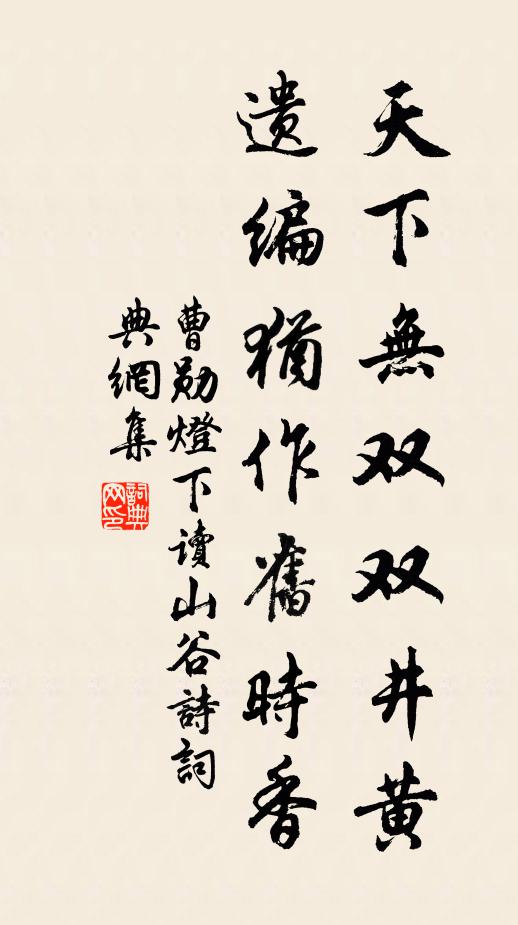 天下無双双井黄
遺编猶作舊時香
曹勛燈下讀山谷詩詞
典網集
詞典网印